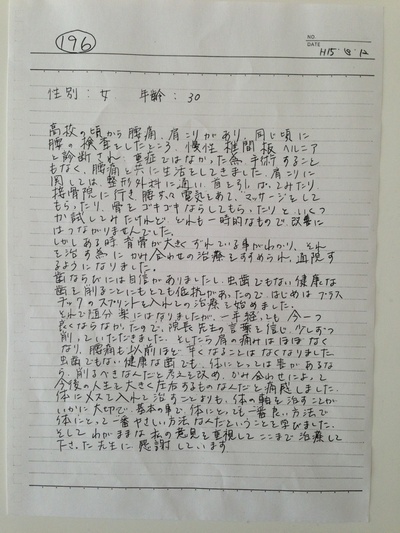 196
NO.
DATE H15.
性別：女 年齢：30
高校の頃から腰痛、肩こりがあり、同じ頃に
腰の検査をしたところ、慢性椎間板ヘルニア
と診断され、重症ではなかった為、手術すること
もなく、腰痛と共に生活をしてきました。肩こりに
関しては整形外科に通い、首を引っぱってみたり
接骨院に行き、電気をあて、マッサージをして
もらったり、骨をゴキゴキならしてもらったりといくつ
か試してみたけれど、どれも一時的なもので、改善に
はつながりませんでした。
しかしある時、背骨が大きくずれている事がわかり、それ
を治す為に、かみ合わせの治療をすすめられ、通院す
るようになりました。
歯ならびには自信がありましたし、虫歯でもない健康な
歯を削ることにもとても抵抗があったので、はじめはプラス
チックのスプリントを入れての治療を始めました。
それで随分楽にはなりましたが、一年経っても今一つ
良くはならなかったので、院長先生の言葉を信じ、少しずつ
削っていただきました。そしたら肩の痛みはほぼなく
なり、腰痛も以前ほど辛くなることはなくなりました
虫歯でもない健康な歯でも、体にとっては害があるな
ら、削るべきなんだと考えを改め、かみ合わせによって
今後の人生を大きく左右するものなんだと痛感しました。
体にメスを入れて治すことよりも、体の軸を治すことが
いかに大切で、基本の事で、体にとっても一番良い方法で
体にとって一番やさしい方法なんだということを学びました。
そしてわがままな私の意見を重視してここまで治療して
下さった先生に感謝しています